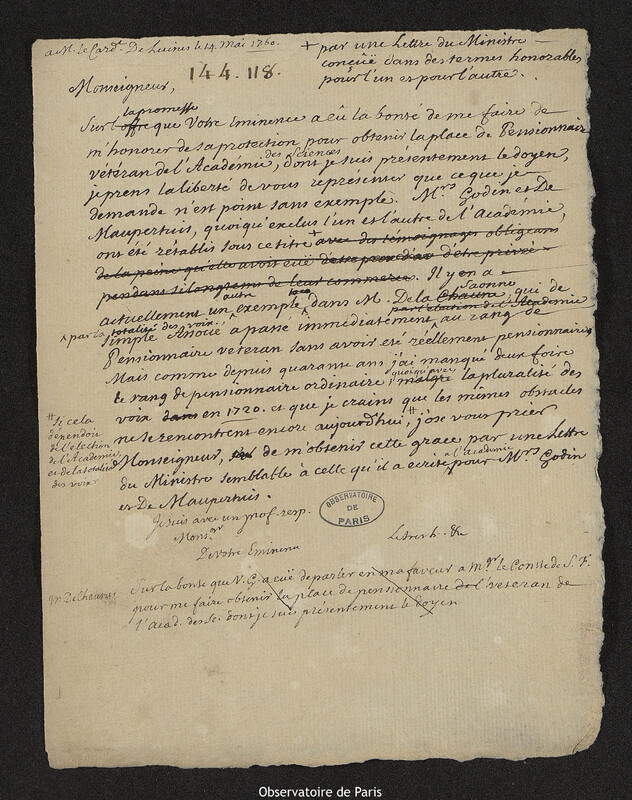 a M. le Card. De Luines le 14. Mai 1760.
+ par une Lettre du Ministre
conçuë dans des termes honorables
pour l'un et pour l'autre.
144.118.
Monseigneur,
la promesse
Sur l'offre que Votre Eminence a eû la bonté de me faire de
m'honorer de sa protection pour obtenir la place de Pensionnaire
des Sciences
veteran de l'Académie, dont je suis présentement le doyen,
je prens la liberté de vous représenter que ce que je
demande n'est point sans exemple. Mrs Godin et De
Maupertuis, quoiqu'exclus l'un et l'autre de l'Académie,
ont été rétablis sous ce titre + avec des témoignages obligeans
de la peine qu'elle avoit euë d'etre privée
pendant si longtems de leur commerce. Il y en a
autre Saonne
actuellement un exemple dans M. De la Chaune, qui de
par la totalité des voix par l'election de l'Academie
simple Associé a passé immédiatement au rang de
Pensionnaire veteran sans avoir été réellement pensionnaire
Mais comme depuis quarante ans j'ai manqué deux foire
quoiqu'avec
le rang de pensionnaire ordenaire malgré la pluralité des
voix dans en 1720. et que je crains que les mêmes obstacles
ne se rencontrent encore aujourdhui, # j'ose vous prier
# si cela
dépendoit
de l'élection
de l'Académie
et de la totalité
des voix
Monseigneur, de m'obtenir cette grace par une Lettre
à l'Academie
du Ministre semblable à celle qu'il a ecrite pour Mrs Godin
et De Maupertuis.
Je suis avec un prof. resp.
Monsgr
De votre Eminence
Le tres h. &c
OBSERVATOIRE
DE
PARIS
M. Delchaunes
Sur la bonté que V. G. a euë de parler en ma faveur a Mgr le Comte de S. F.
pour me faire obtenir la place de pensionnaire de l' veteran de
l'Acad. des Sc. dont je suis présentement le doyen
Observatoire de Paris